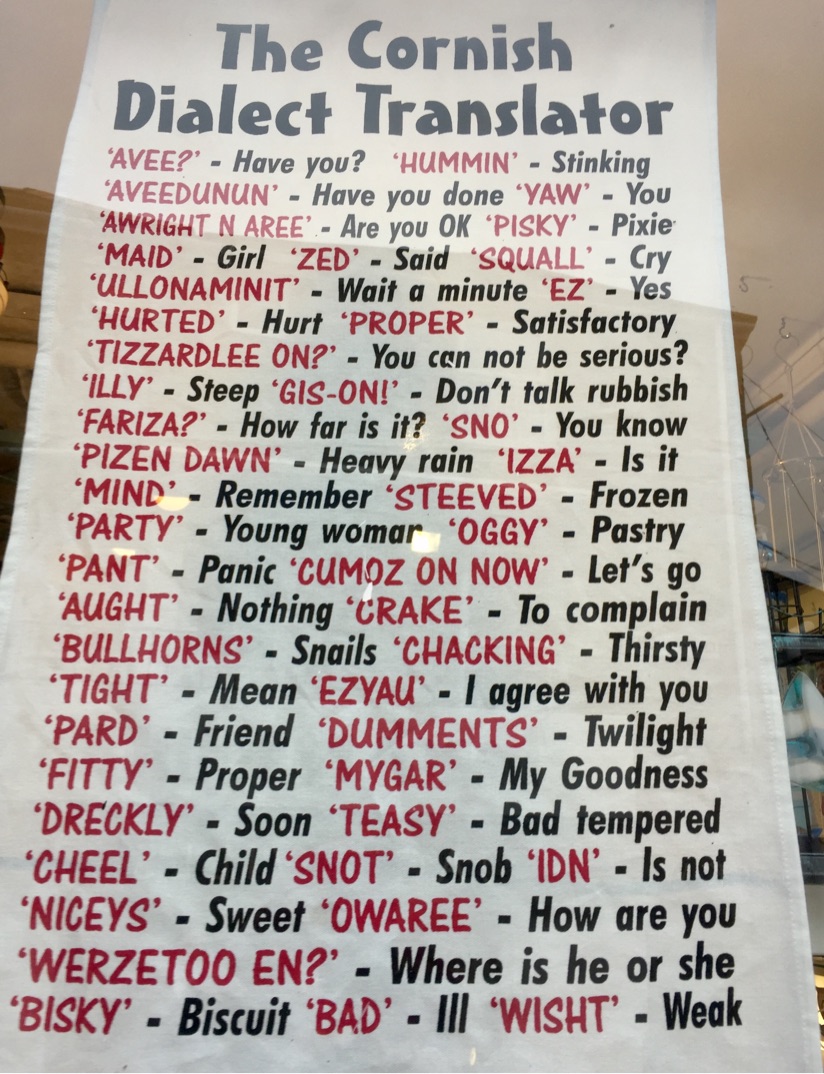 The Cornish
Dialect Translator
'AVEE?' - Have you? 'HUMMIN' - Stinking
'AVEEDUNUN' - Have you done 'YAW' - You
'AWRIGHT N AREE' - Are you OK 'PISKY' - Pixie
'MAID' - Girl 'ZED' - Said 'SQUALL' - Cry
'ULLONAMINIT' - Wait a minute 'EZ' - Yes
'HURTED' - Hurt 'PROPER' - Satisfactory
'TIZZARDLEE ON?' - You can not be serious?
'ILLY' - Steep 'GIS-ON!' - Don't talk rubbish
'FARIZA?' - How far is it? 'SNO' - You know
'PIZEN DAWN' - Heavy rain 'IZZA' - Is it
'MIND' - Remember 'STEEVED' - Frozen
'PARTY' - Young woman 'OGGY' - Pastry
'PANT' - Panic 'CUMOZ ON NOW' - Let's go
'AUGHT' - Nothing 'CRAKE' - To complain
'BULLHORNS' - Snails 'CHACKING' - Thirsty
'TIGHT' - Mean 'EZYAU' - I agree with you
'PARD' - Friend 'DUMMENTS' - Twilight
'FITTY' - Proper 'MYGAR' - My Goodness
'DRECKLY' - Soon 'TEASY' - Bad tempered
'CHEEL' - Child 'SNOT' - Snob 'IDN' - Is not
'NICEYS' - Sweet 'OWAREE' - How are you
'WERZETOO EN?' - Where is he or she
'BISKY' - Biscuit 'BAD' - Ill 'WISHT' - Weak